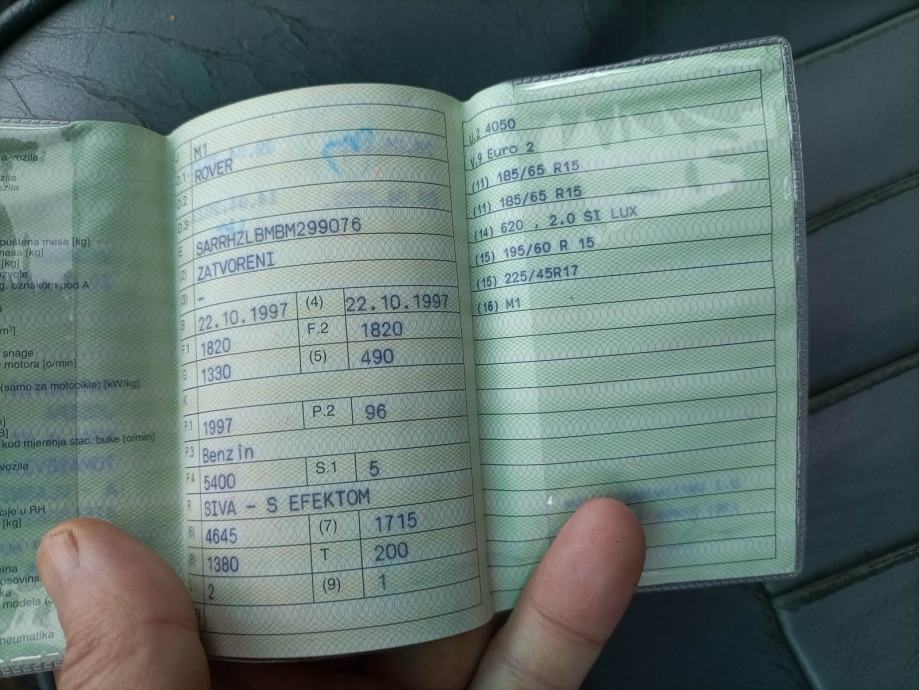 a vozila
zila
ozila
puštena masa [kg]
masa [kg]
[kg]
ozvole
g. oznakom pod A
m³]
snage
motora [o/min]
(samo za motocikle) [kW/kg]
kod mjerenja stac. buke [o/min]
vozila
cije u RH
[kg]
ovina
osovins
ka
modela (
neumatika
J M1
D.1 ROVER
D.2
D.3
E SARRHZLBMBM299076
(2) ZATVORENI
(3) –
B 22.10.1997 (4) 22.10.1997
F.1 1820 F.2 1820
G 1330 (5) 490
K
P.1 1997 P.2 96
P.3 Benzin
P.4 5400 S.1 5
R SIVA - S EFEKTOM
(6) 4645 (7) 1715
(8) 1380 T 200
L 2 (9) 1
U.2 4050
V.9 Euro 2
(11) 185/65 R15
(11) 185/65 R15
(14) 620 , 2.0 SI LUX
(15) 195/60 R 15
(15) 225/45R17
(16) M1